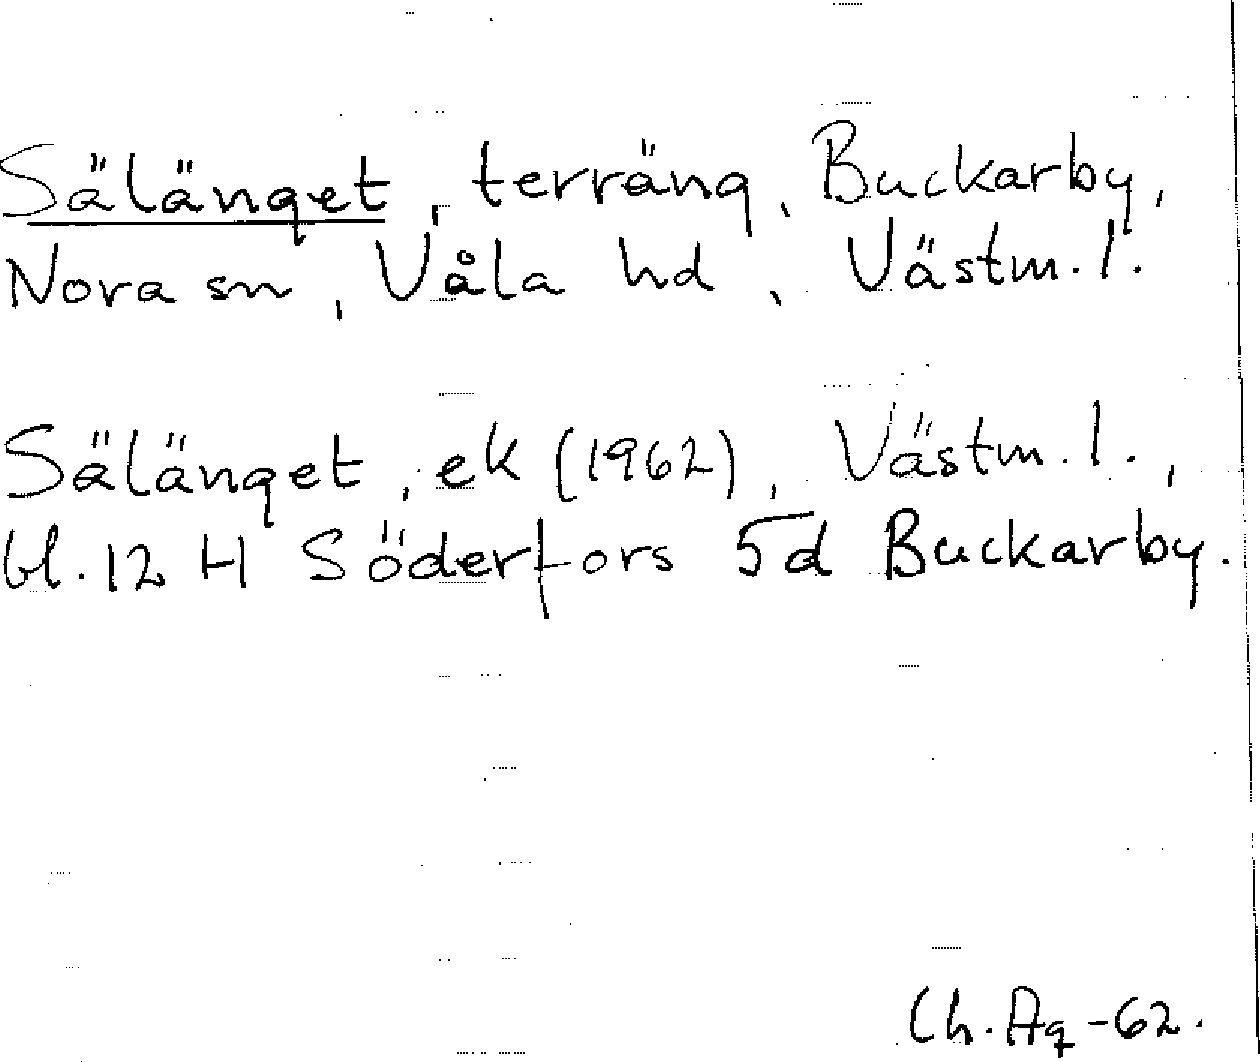 Sälänget, terräng, Buckarby,
Nora sn, Våla hd, Västm.l.
Sälänget, ek (1962), Västm.l.,
bl. 12 H Söderfors 5d Buckarby.
Ch. Aq -62.